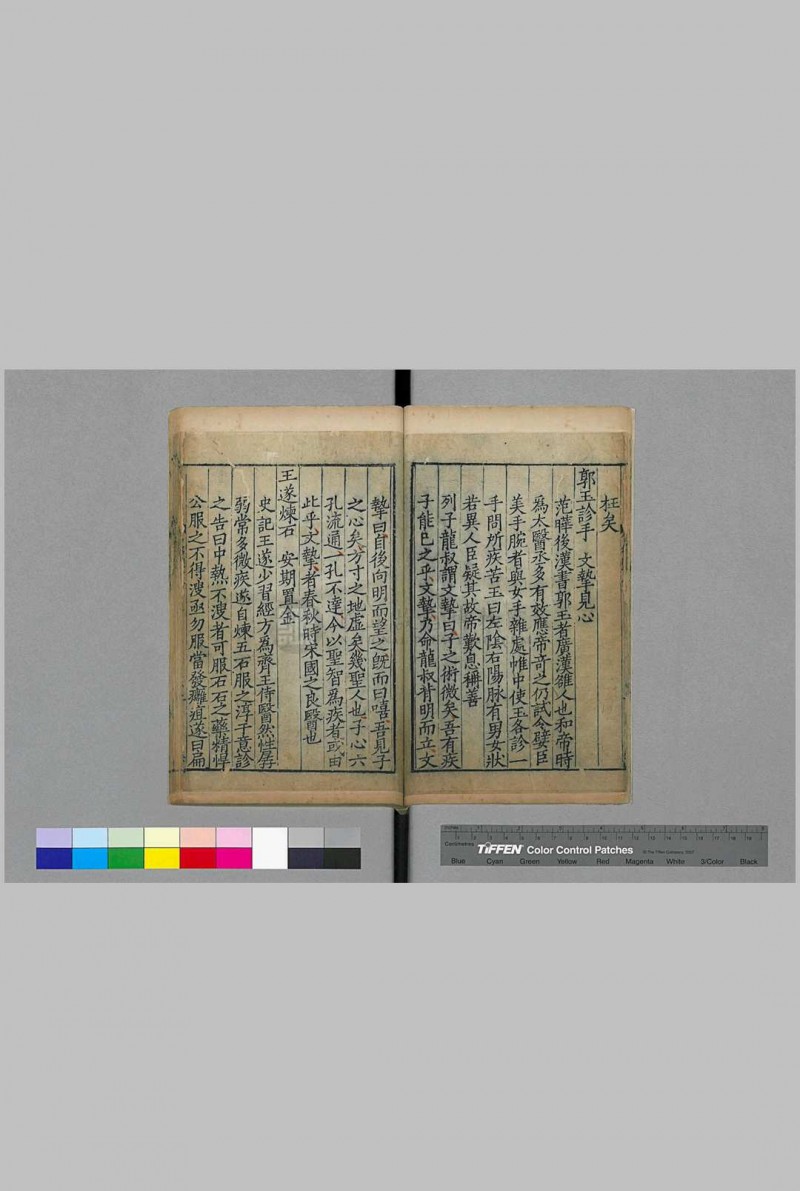 枉矣
郭玉診手　文摯見心
范曄後漢書郭玉者廣漢雒人也和帝時
為太醫丞多有效應帝奇之仍試令嬖臣
美手腕者與女手雜處帷中使玉各診一
手問所疾苦玉曰左陰右陽脉有男女狀
若異人臣疑其故帝歎息稱善
列子龍叔謂文摯曰子之術微矣吾有疾
子能已之乎文摯乃命龍叔背明而立文
摯曰自後向明而望之既而曰嘻吾見子
之心矣方寸之地虛矣幾聖人也子心六
孔流通一孔不達今以聖智為疾者或由
此乎文摯者春秋時宋國之良醫也
王遂煉石　安期置金
史記王遂少習經方為齊王侍醫然性孱
弱常多微疾遂自煉五石服之淳于意診
之告曰中熱不溲者可服石石之藥精悍
公服之不得溲亟勿服當發癰疽遂曰扁
TIFFEN Color Control Patches
Centimetres
Blue Cyan Green Yellow Red Magenta White 3/Color Black